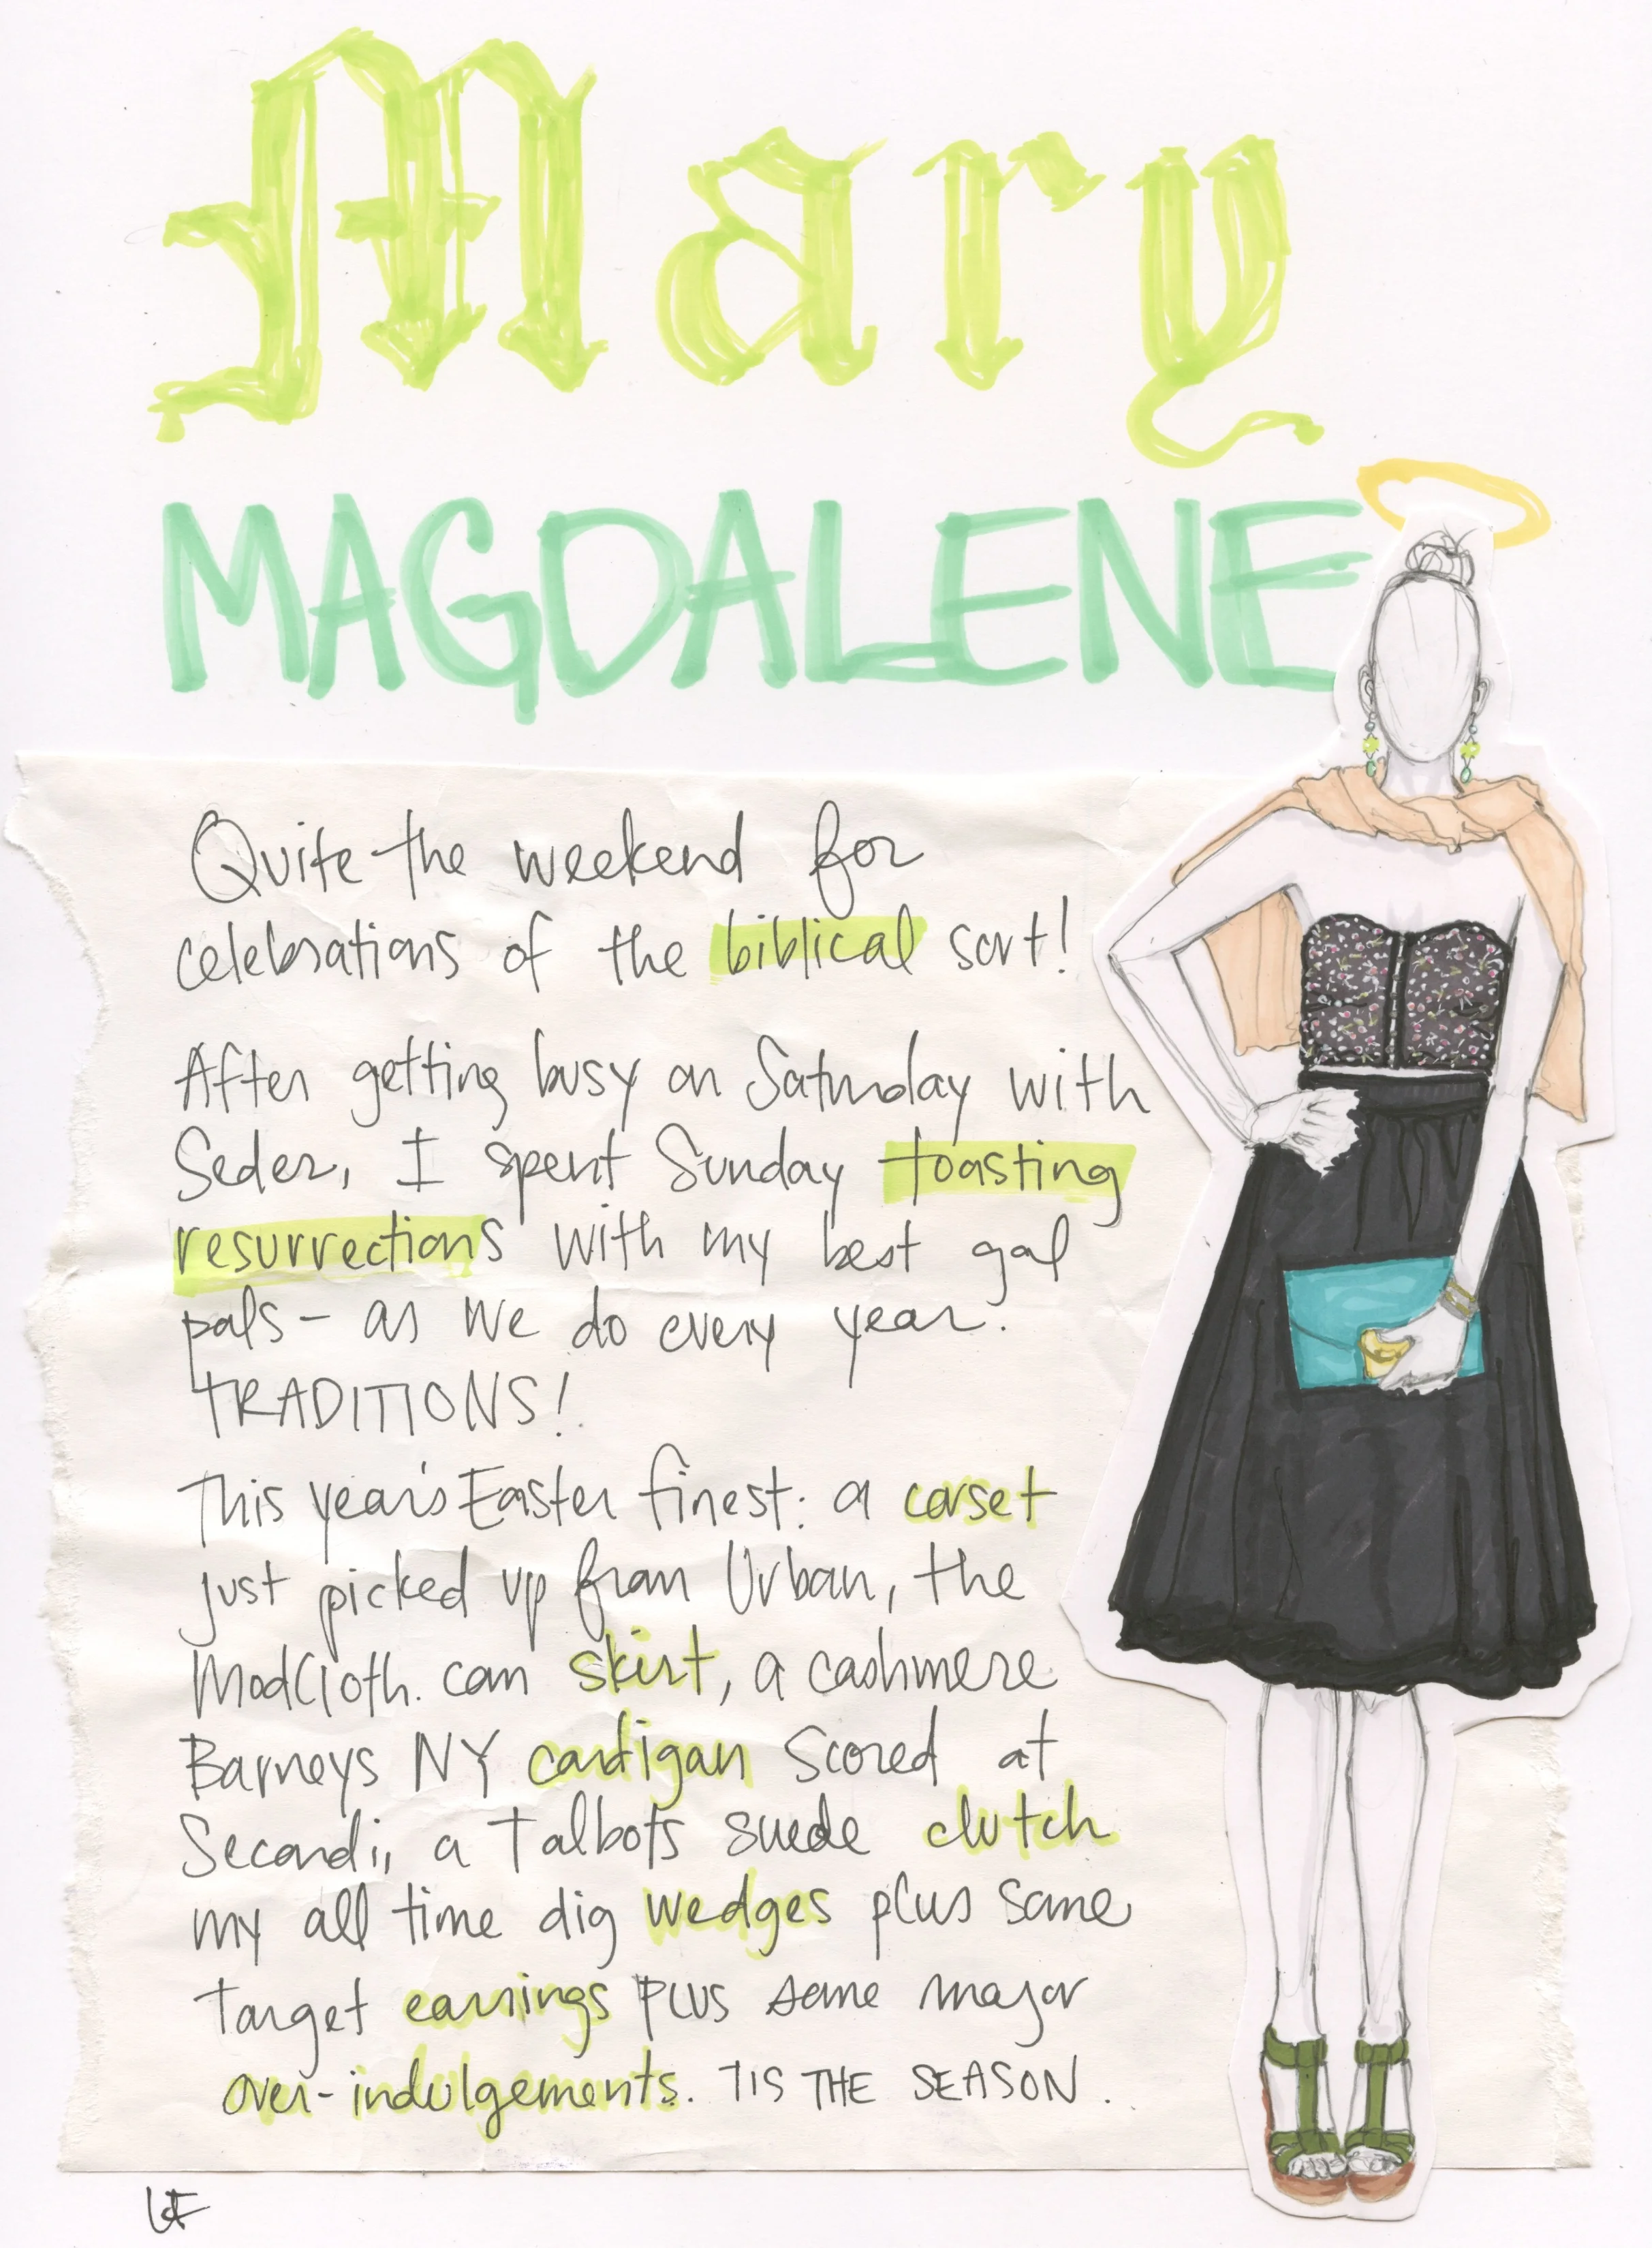 Mary
MAGDALENE
Quite the weekend for
celebrations of the biblical sort!
After getting busy on Saturday with
Seder, I spent Sunday toasting
resurrections with my best gal
pals - as we do every year.
TRADITIONS!
This year's Easter finest: a corset
just picked up from Urban, the
ModCloth.com skirt, a cashmere
Barneys NY cardigan scored at
Secondi, a Talbots suede clutch
my all time dig wedges plus some
Target earrings plus some major
over-indulgements. TIS THE SEASON.